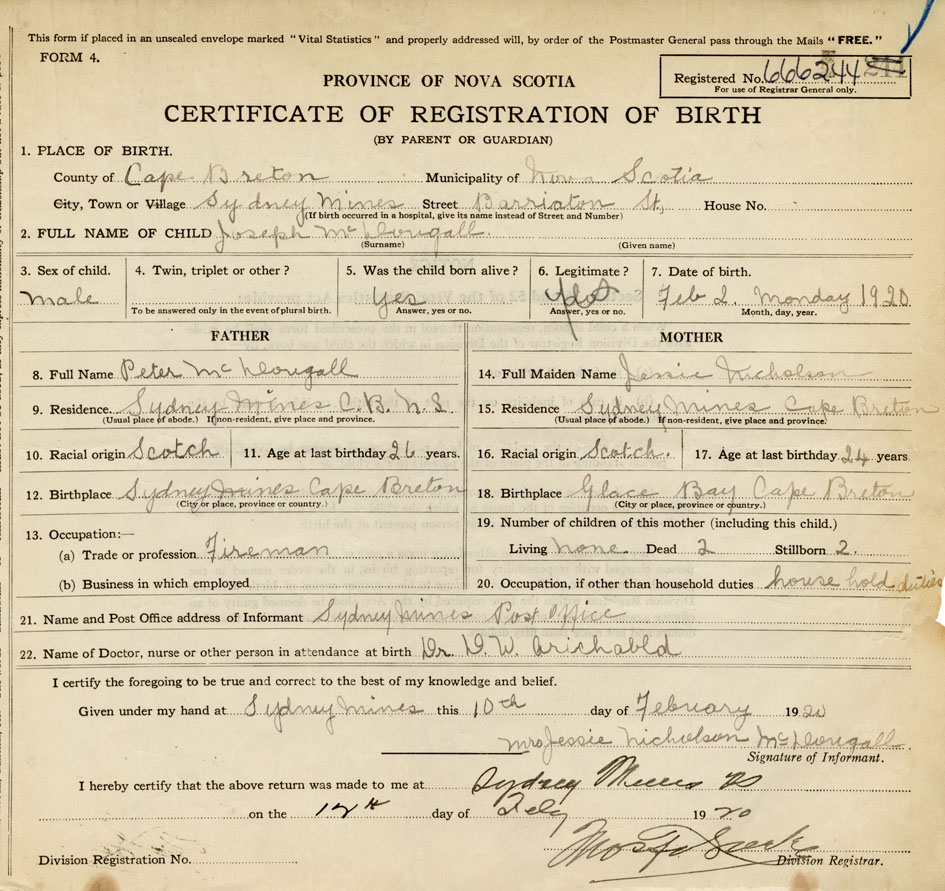 This form if placed in an unsealed envelope marked "Vital Statistics" and properly addressed will, by order of the Postmaster General pass through the Mails "FREE."
FORM 4.
PROVINCE OF NOVA SCOTIA
Registered No. 666244
For use of Registrar General only.
CERTIFICATE OF REGISTRATION OF BIRTH
(BY PARENT OR GUARDIAN)
1. PLACE OF BIRTH.
County of Cape Breton Municipality of Nova Scotia
City, Town or Village Sydney Mines Street Barriaton St, House No.
(If birth occurred in a hospital, give its name instead of Street and Number)
2. FULL NAME OF CHILD Joseph McDougall.
(Surname) (Given name)
3. Sex of child. 4. Twin, triplet or other? 5. Was the child born alive? 6. Legitimate? 7. Date of birth.
male Yes Feb 2. Monday 1920
To be answered only in the event of plural birth. Answer, yes or no. Answer, yes or no. Month, day, year.
FATHER MOTHER
8. Full Name Peter McDougall 14. Full Maiden Name Jessie Nicholson
9. Residence. Sydney Mines C.B. N.S. 15. Residence Sydney Mines Cape Breton
(Usual place of abode.) If non-resident, give place and province. (Usual place of abode.) If non-resident, give place and province.
10. Racial origin Scotch 11. Age at last birthday 26 years. 16. Racial origin Scotch. 17. Age at last birthday 24 years
12. Birthplace Sydney Mines Cape Breton 18. Birthplace Glace Bay Cape Breton
(City or place, province or country.) (City or place, province or country.)
19. Number of children of this mother (including this child.)
13. Occupation:—
(a) Trade or profession Fireman Living none. Dead 2 Stillborn 2.
(b) Business in which employed 20. Occupation, if other than household duties house hold duties
21. Name and Post Office address of Informant Sydney Mines Post Office
22. Name of Doctor, nurse or other person in attendance at birth Dr. D.W. Arichabld
I certify the foregoing to be true and correct to the best of my knowledge and belief.
Given under my hand at Sydney Mines this 10th day of February 1920
Mrs Jessie Nicholson McDougall
Signature of Informant.
I hereby certify that the above return was made to me at Sydney Mines
on the 12th day of Feby 1920
Division Registration No. Division Registrar.